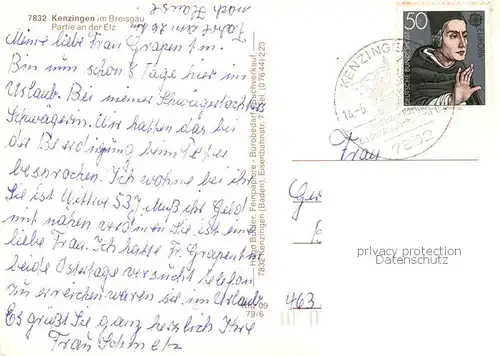 7832 Kenzingen im Breisgau
Partie an der Elz
Fahrt am 26ten
nach Hause
Meine liebe Frau Grapentin.
Bin nun schon 8 Tage hier im
Urlaub. Bei meiner Schwagertochters
Schwägerin. Wir hatten das bei
der Beerdigung beim Peter
besprochen. Ich wohne bei ihr
Sie ist Wittwe 53J. Muß ihr Geld
mit nähen verdienen Sie ist eine
liebe Frau. Ich hatte Fr. Grapentin
beide Ostertage versucht telefon.
zu erreichen waren sie im Urlaub
Es grüßt Sie ganz herzlich Ihre
Frau Schmetz
Hugo Buhler, Fernsprecher - Bürobedarf - Buchverkauf
7832 Kenzingen (Baden), Eisenbahnstr. Tel. (07644) 223
09
79/6
50
EUROPA
DEUTSCHE BUNDESPOST
KENZINGEN
14.-6.
7832
Frau
Ger
463
privacy protection
Datenschutz